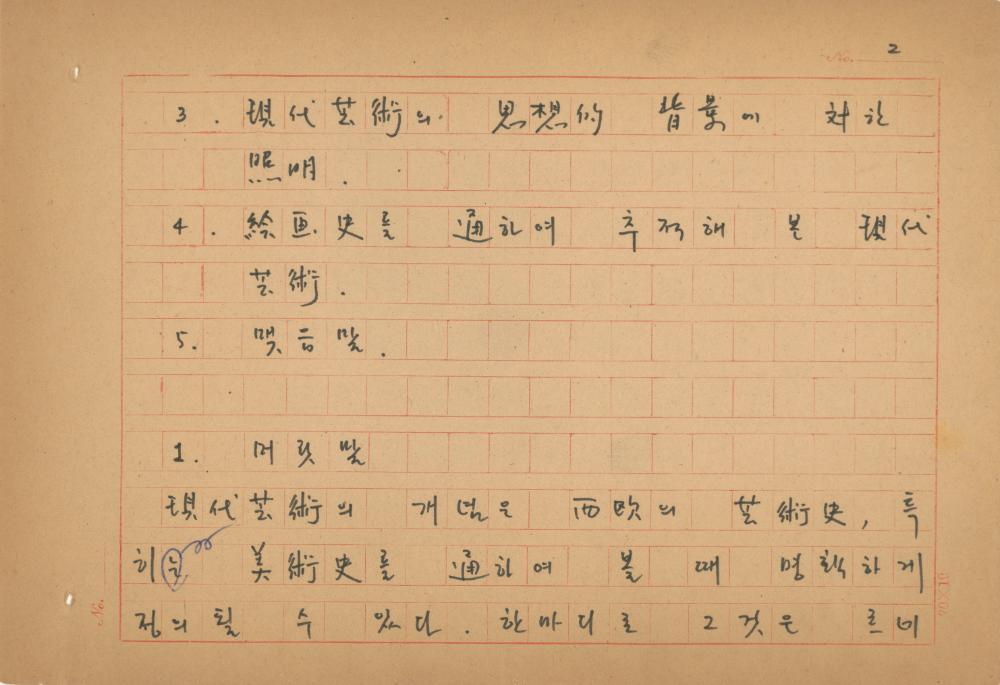 No. 2
3. 現代芸術의 思想的 背景에 対한
照明.
4. 絵画史를 通하여 추적해 본 現代
芸術.
5. 맺음말.
1. 머릿말
現代芸術의 개념은 西欧의 芸術史, 특
히는 美術史를 通하여 볼 때 명확하게
정의될 수 있다. 한마디로 그것은 르네
No.
20×10